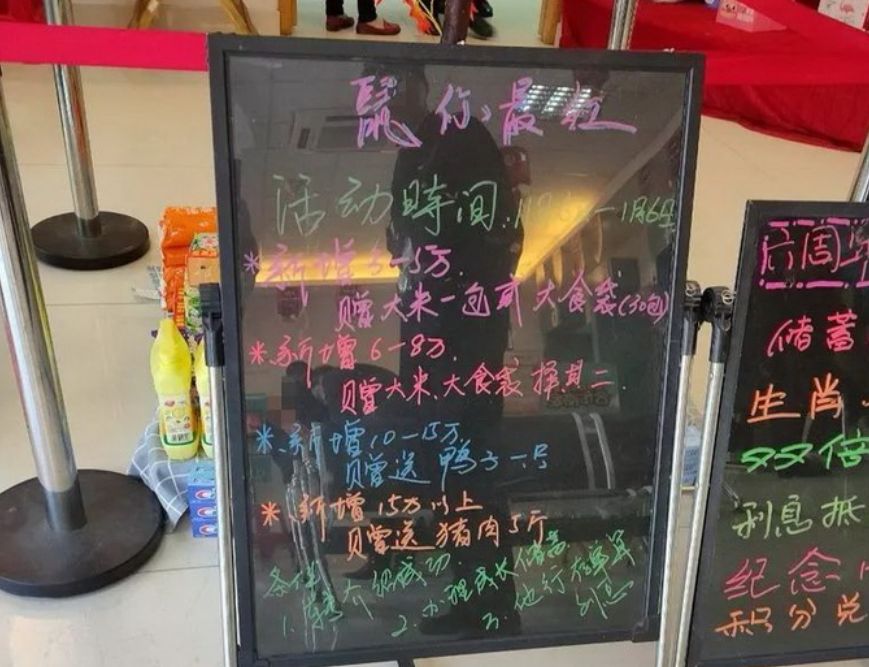 鼠你最红
活动時间:1月3日—1月6日
*新增3-5万
赠大米一包或大食袋(30包)
*新增6-8万.
赠大米、大食袋择其二.
*新增10-15万
赠送鸭子一号
*新增15万以上
赠送猪肉5斤
条件
1. 介绍成功
2. 办理成长储蓄
3. 他行
利息
六周
储蓄
生肖
双倍
利息抵
纪念
积分兑